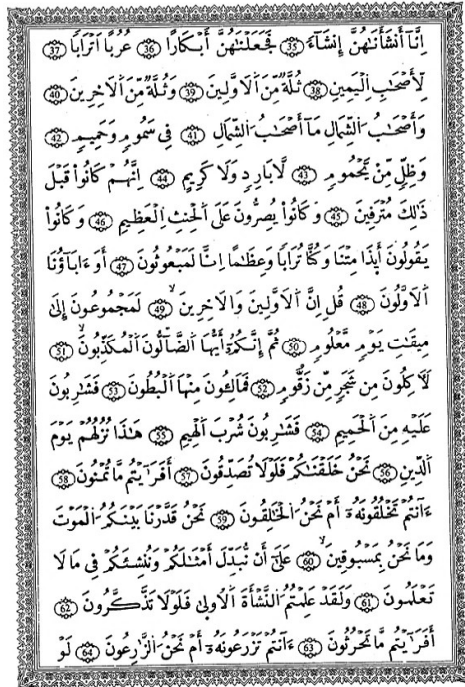 إِنَّآ أَنشَأْنَٰهُنَّ إِنشَآءً 35 فَجَعَلْنَٰهُنَّ أَبْكَارًا 36 عُرُبًا أَتْرَابًا 37
لِّأَصْحَٰبِ اِ۬لْيَمِينِ 38 ثُلَّةٌ مِّنَ اَ۬لْأَوَّلِينَ 39 وَثُلَّةٌ مِّنَ اَ۬لْأٓخِرِينَ 40
وَأَصْحَٰبُ اُ۬لشِّمَالِ مَآ أَصْحَٰبُ اُ۬لشِّمَالِ 41 فِى سَمُومٍ وَحَمِيمٍ 42
وَظِلٍّ مِّنْ يَّحْمُومٍ 43 لَّا بَارِدٍ وَلَا كَرِيمٍ 44 إِنَّهُمْ كَانُواْ قَبْلَ
ذَٰلِكَ مُتْرَفِينَ 45 وَكَانُواْ يُصِرُّونَ عَلَى اَ۬لْحِنثِ اِ۬لْعَظِيمِ 46 وَكَانُواْ
يَقُولُونَ أَيِٕذَا مِتْنَا وَكُنَّا تُرَابًا وَعِظَٰمًا إِنَّا لَمَبْعُوثُونَ 47 أَوَ ءَابَآؤُنَا
اَ۬لْأَوَّلُونَ 48 قُلْ إِنَّ اَ۬لْأَوَّلِينَ وَالْأٓخِرِينَ 49 لَمَجْمُوعُونَ إِلَىٰ
مِيقَٰتِ يَوْمٍ مَّعْلُومٍ 50 ثُمَّ إِنَّكُمْ أَيُّهَا اَ۬لضَّآلُّونَ اَ۬لْمُكَذِّبُونَ 51
لَأٓكِلُونَ مِن شَجَرٍ مِّن زَقُّومٍ 52 فَمَالِـُٔونَ مِنْهَا اَ۬لْبُطُونَ 53 فَشَٰرِبُونَ
عَلَيْهِ مِنَ اَ۬لْحَمِيمِ 54 فَشَٰرِبُونَ شُرْبَ اَ۬لْهِيمِ 55 هَٰذَا نُزُلُهُمْ يَوْمَ
اَ۬لدِّينِ 56 نَحْنُ خَلَقْنَٰكُمْ فَلَوْلَا تُصَدِّقُونَ 57 أَفَرَٰٓيْتُم مَّا تُمْنُونَ 58
ءَآنتُمْ تَخْلُقُونَهُۥٓ أَمْ نَحْنُ اُ۬لْخَٰلِقُونَ 59 نَحْنُ قَدَّرْنَا بَيْنَكُمُ اُ۬لْمَوْتَ
وَمَا نَحْنُ بِمَسْبُوقِينَ 60 عَلَىٰٓ أَن نُّبَدِّلَ أَمْثَٰلَكُمْ وَنُنشِئَكُمْ فِى مَا لَا
تَعْلَمُونَ 61 وَلَقَدْ عَلِمْتُمُ اُ۬لنَّشْأَةَ اَ۬لْأُولَىٰ فَلَوْلَا تَذَّكَّرُونَ 62
أَفَرَٰٓيْتُم مَّا تَحْرُثُونَ 63 ءَآنتُمْ تَزْرَعُونَهُۥٓ أَمْ نَحْنُ اُ۬لزَّٰرِعُونَ 64 لَوْ